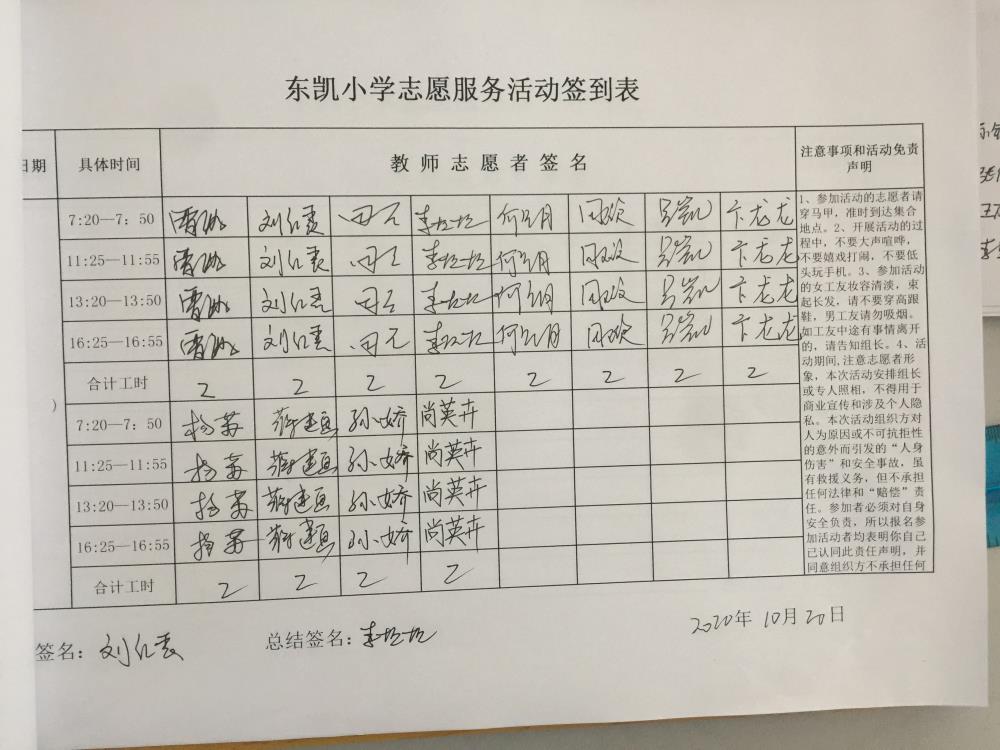 东凯小学志愿服务活动签到表
日期 具体时间 教师志愿者签名 注意事项和活动免责声明
7:20—7：50 刘红霞 田元 李垃垃 周欢 卞龙龙
11:25—11:55 刘红霞 田元 李垃垃 周欢 卞龙龙
13:20—13:50 刘红霞 田元 李垃垃 周欢 卞龙龙
16:25—16:55 刘红霞 田元 李垃垃 周欢 卞龙龙
合计工时 2 2 2 2 2 2 2 2
7:20—7：50 杨苏 孙娇 尚英卉
11:25—11:55 杨苏 孙娇 尚英卉
13:20—13:50 杨苏 孙娇 尚英卉
16:25—16:55 杨苏 孙娇 尚英卉
合计工时 2 2 2 2
1、参加活动的志愿者请
穿马甲，准时到达集合
地点。2、开展活动的过
程中，不要大声喧哗，
不要嬉戏打闹，不要低
头玩手机。3、参加活动
的女工友妆容清淡，束
起长发，请不要穿高跟
鞋，男工友请勿吸烟。
如工友中途有事情离开
的，请告知组长。4、活
动期间,注意志愿者形
象，本次活动安排组长
或专人照相，不得用于
商业宣传和涉及个人隐
私。本次活动组织方对
人为原因或不可抗拒性
的意外而引发的“人身
伤害”和安全事故，虽
有救援义务，但不承担
任何法律和“赔偿”责
任。参加者必须对自身
安全负责，所以报名参
加活动者均表明你自己
已认同此责任声明，并
同意组织方不承担任何
签名：刘红霞 总结签名：李垃垃 2020年10月20日